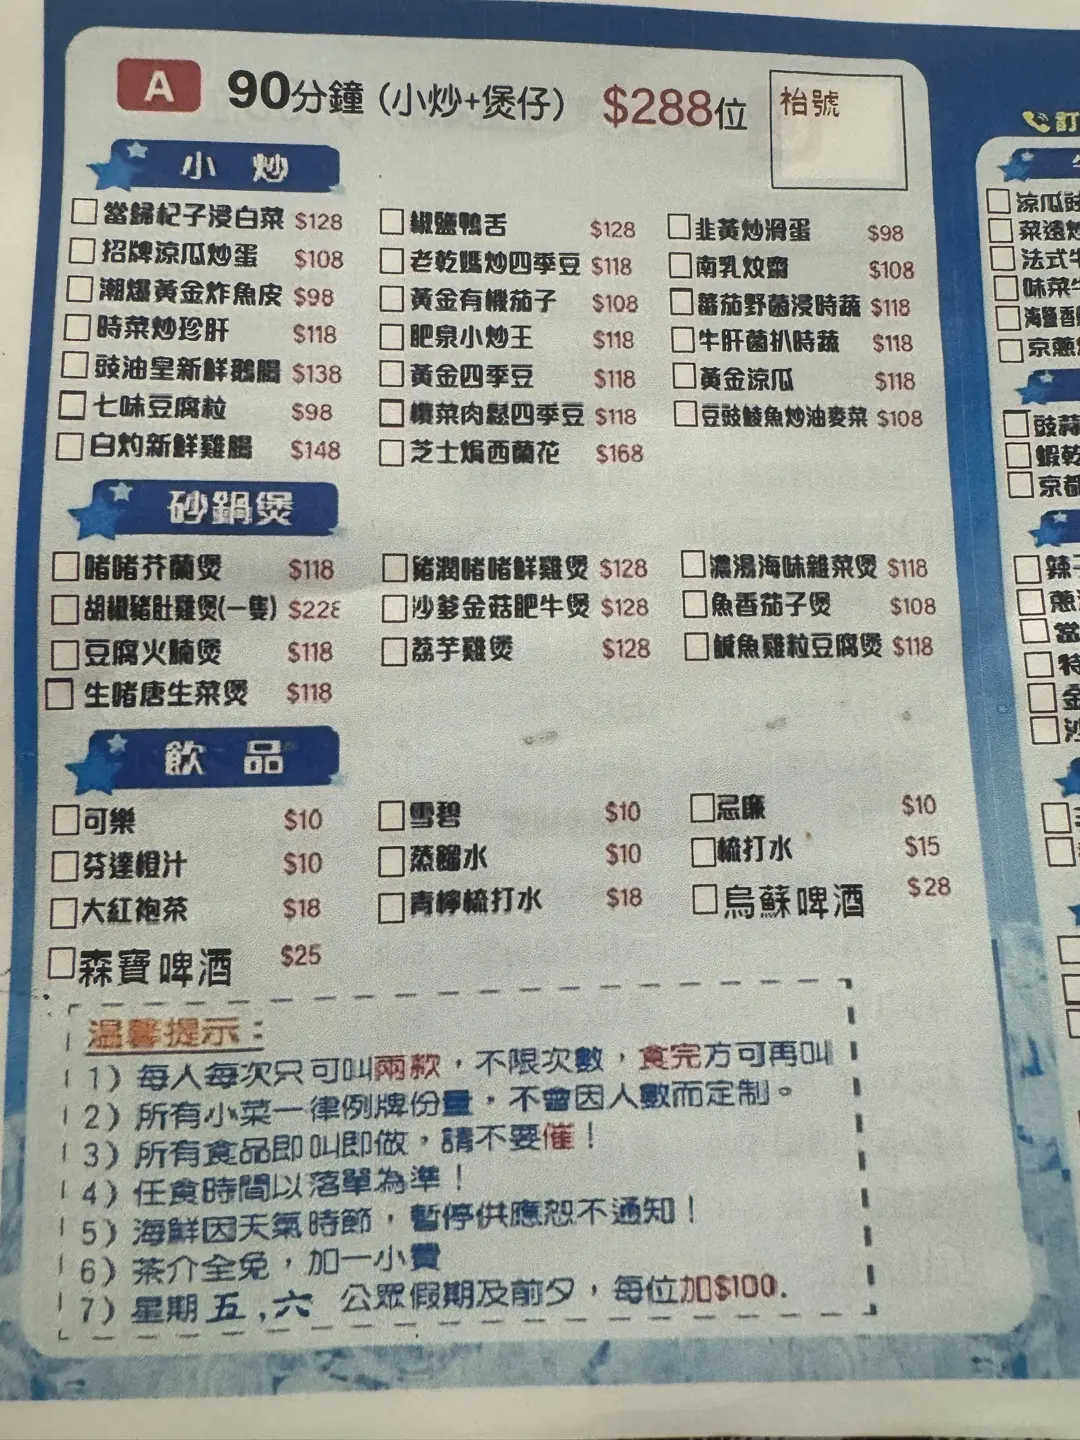 A 90分鐘（小炒+煲仔） $288位 枱號
訂
小 炒
當歸杞子浸白菜 $128 椒鹽鴨舌 $128 韭黃炒滑蛋 $98
招牌涼瓜炒蛋 $108 老乾媽炒四季豆 $118 南乳炆齋 $108
潮爆黃金炸魚皮 $98 黃金有機茄子 $108 蕃茄野菌浸時蔬 $118
時菜炒珍肝 $118 肥泉小炒王 $118 牛肝菌扒時蔬 $118
豉油皇新鮮鵝腸 $138 黃金四季豆 $118 黃金涼瓜 $118
七味豆腐粒 $98 欖菜肉鬆四季豆 $118 豆豉鯪魚炒油麥菜 $108
白灼新鮮雞腸 $148 芝士焗西蘭花 $168
砂鍋煲
啫啫芥蘭煲 $118 豬潤啫啫鮮雞煲 $128 濃湯海味雜菜煲 $118
胡椒豬肚雞煲(一隻) $228 沙爹金菇肥牛煲 $128 魚香茄子煲 $108
豆腐火腩煲 $118 荔芋雞煲 $128 鹹魚雞粒豆腐煲 $118
生啫唐生菜煲 $118
飲 品
可樂 $10 雪碧 $10 忌廉 $10
芬達橙汁 $10 蒸餾水 $10 梳打水 $15
大紅袍茶 $18 青檸梳打水 $18 烏蘇啤酒 $28
森寶啤酒 $25
溫馨提示：
1）每人每次只可叫兩款，不限次數，食完方可再叫
2）所有小菜一律例牌份量，不會因人數而定制。
3）所有食品即叫即做，請不要催！
4）任食時間以落單為準！
5）海鮮因天氣時節，暫停供應恕不通知！
6）茶介全免，加一小費
7）星期 五,六 公眾假期及前夕，每位加$100.
涼瓜
菜遠炒
法式牛
味菜牛
海鹽香
京蔥
豉蒜
蝦乾
京都
辣子
蔥
當
特
金
沙